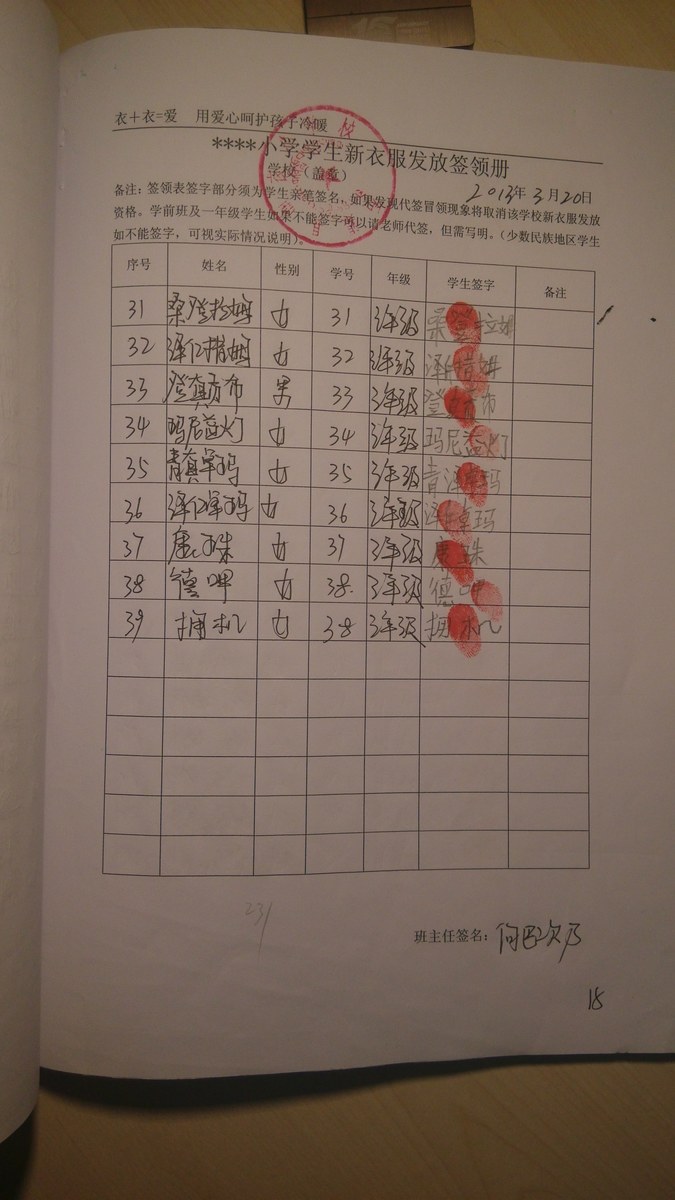 衣+衣=爱 用爱心呵护孩子冷暖
****小学学生新衣服发放签领册
学校（盖章）
2013年3月20日
备注：签领表签字部分须为学生亲笔签名，如果发现代签冒领现象将取消该学校新衣服发放
资格。学前班及一年级学生如果不能签字可以请老师代签，但需写明。（少数民族地区学生
如不能签字，可视实际情况说明）。
序号 姓名 性别 学号 年级 学生签字 备注
31 桑登拉姆 女 31 3年级 桑登拉姆
32 泽仁措姆 女 32 3年级 泽仁措姆
33 登真方布 男 33 3年级 登真方布
34 玛尼益灯 女 34 3年级 玛尼益灯
35 青真卓玛 女 35 3年级 青泽卓玛
36 泽仁卓玛 女 36 3年级 泽仁卓玛
37 康珠 女 37 3年级 康珠
38 德呷 女 38. 3年级 德呷
39 拥机 女 38 3年级 拥机
231
班主任签名：向巴次乃
18